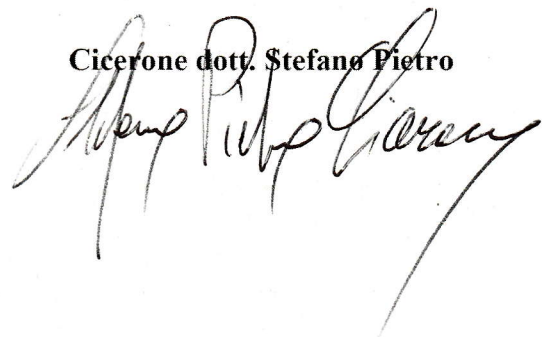 Cicerone dott. Stefano Pietro
Stefano Pietro Cicerone